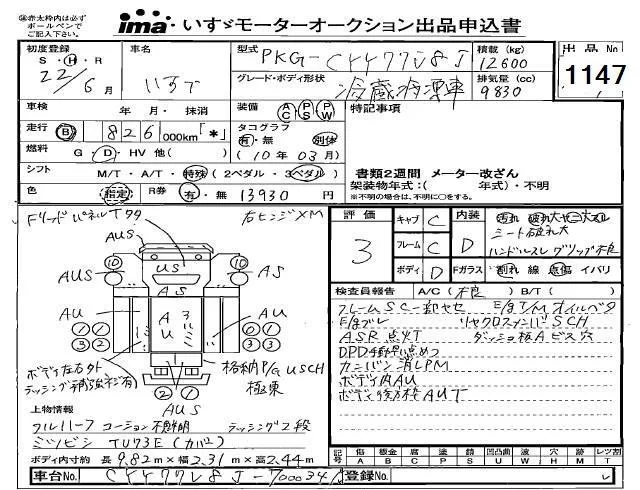 ※赤太枠内は必ず
ボールペンで
ご記入下さい。
ima いすゞモーターオークション出品申込書
初度登録
S・H・R
22/6月
車名
いすゞ
型式
PKG-CYY77V8J
積載(kg)
12600
出品No
1147
グレード・ボディ形状
冷蔵冷凍車
排気量(cc)
9830
車検
年・月・抹消
装備
AC PS PW
特記事項
走行
B 826,000km「*」
タコグラフ
有・無 別体
(10年03月)
燃料
G・D・HV 他( )
シフト
M/T・A/T・特殊(2ペダル・3ペダル)
書類2週間 メーター改ざん
架装物年式:( 年式)・不明
※不明の場合は、不明に○をする。
色
指定
R券
有・無
13930円
評価
3
キャブ C
フレーム C
ボディ D
内装
D
汚れ 破れ大 ヤニ大 スレ
シート破れ大
ハンドルスレ グリップ不良
Fガラス
割れ 線 点傷 イバリ
FリードパネルTタタ
右ヒンジXM
AUS
US
AUS
AS
AS
AU
AU
AUS
検査員報告
A/C(不良) B/T( )
フレームSC一部ヤセ E/g T/M オイルベタ
E/gブレ リヤクロスメンバSCH
ASR点灯 ダッシュ板Aビス穴
DPD手動早い点めつ
カンバン消しPM
ボディ内AU
ボディ後ろ枠AUT
ボディ左右外
ラッシング補強ネジ有
格納P/G USCH
極東
上物情報
フルハーフ コーション不鮮明 ラッシング2段
ミツビシ TU73E(カバ)
ボディ内寸約 長9.82m×幅2.31m×高2.44m
記号
傷 A
板金 B
腐 C
塗 P
錆 S
凹凸曲 U
波 W
穴 H
跡 M
レツ割 T
車台No.
CYY77V8J-7000343
登録No.